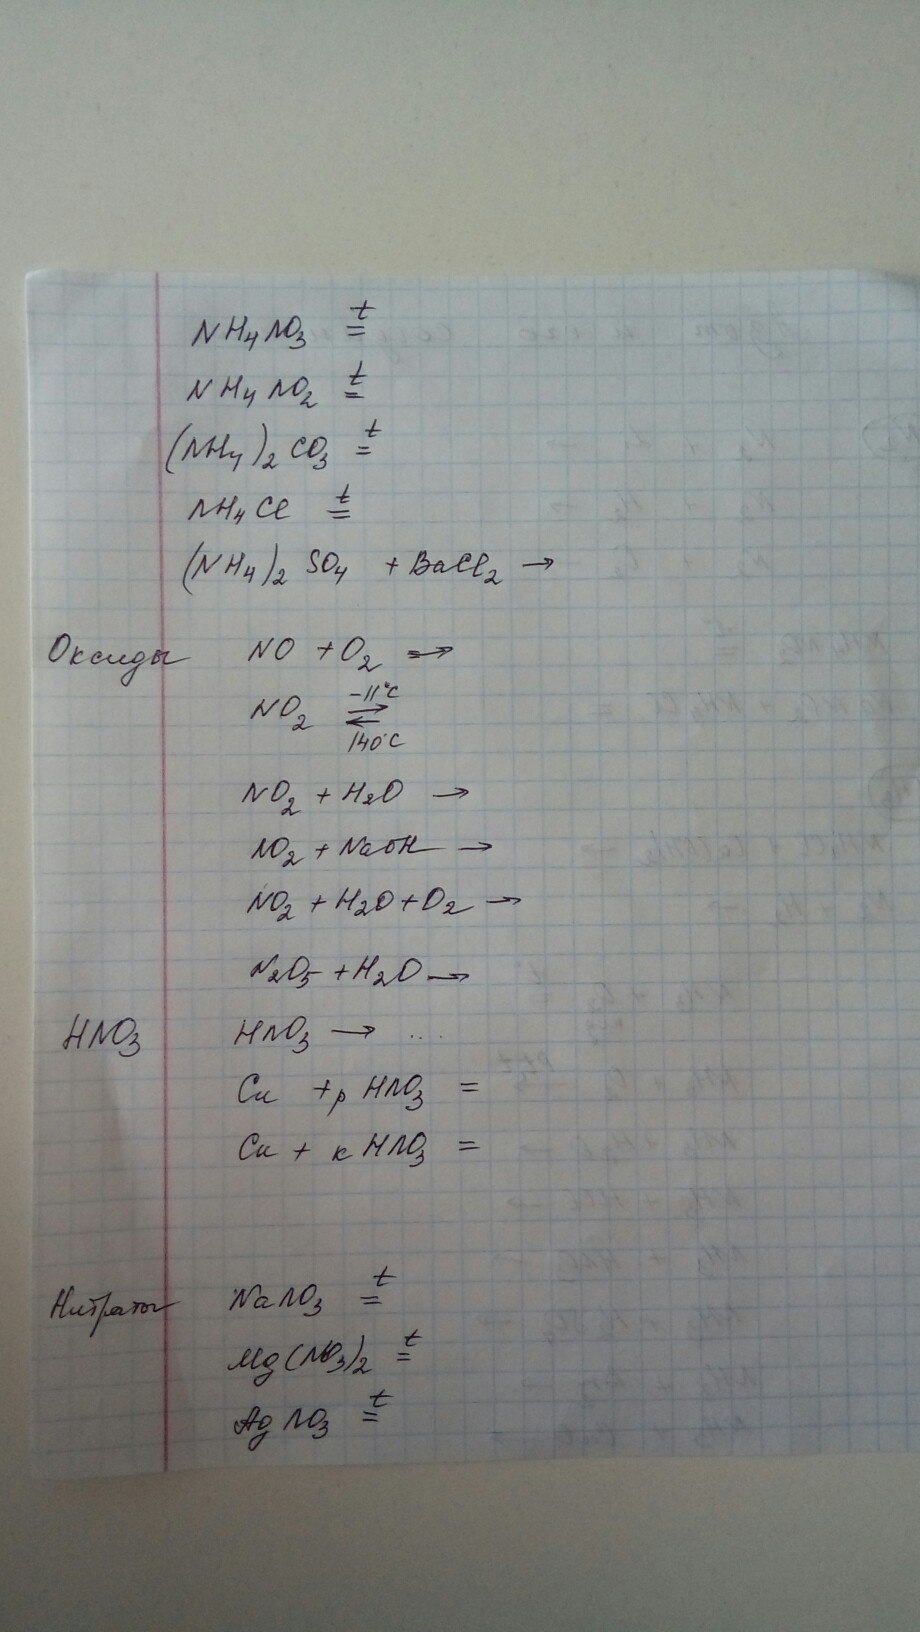 NH₄NO₃ =ᵗ
NH₄NO₂ =ᵗ
(NH₄)₂CO₃ =ᵗ
NH₄Cl =ᵗ
(NH₄)₂SO₄ + BaCl₂ →
Оксиды NO + O₂ →
-11°C
NO₂ ⇄
140°C
NO₂ + H₂O →
NO₂ + NaOH →
NO₂ + H₂O + O₂ →
N₂O₅ + H₂O →
HNO₃ HNO₃ → ...
Cu + р HNO₃ =
Cu + к HNO₃ =
Нитраты NaNO₃ =ᵗ
Mg(NO₃)₂ =ᵗ
AgNO₃ =ᵗ